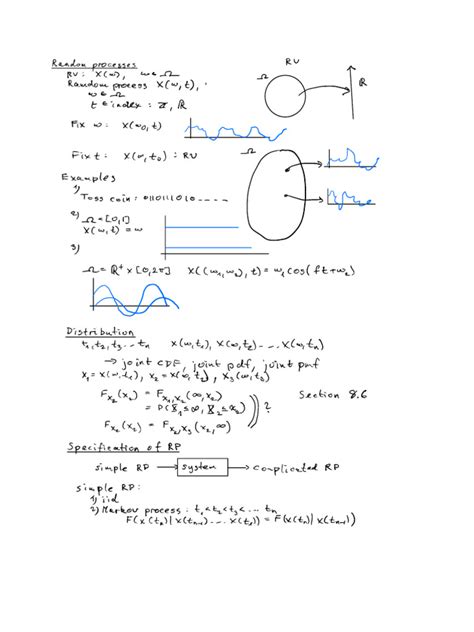 Random processes
RV
RV: X(ω), ω∈Ω
Ω
ℝ
Random process X(ω,t),
ω∈Ω
t∈index: ℤ, ℝ
Fix ω: X(ω₀,t)
Fix t: X(ω,t₀): RV
Ω
Examples
1)
Toss coin: 0110111010-----
2)
Ω=[0,1]
X(ω,t)=ω
3)
Ω=ℝ⁺×[0,2π] X((ω₁,ω₂),t)=ω₁cos(ft+ω₂)
Distribution
t₁,t₂,t₃...tₙ X(ω,t₁), X(ω,t₂)... X(ω,tₙ)
→ joint CDF, joint pdf, joint pmf
X₁=X(ω,t₁), X₂=X(ω,t₂), X₃(ω,t₃)
F_X₂(x₂) = F_X₁,X₂(∞,x₂)
Section 8.6
= P(X₁≤∞, X₂≤x₂) ?
F_X₂(x₂) = F_X₂,X₃(x₂,∞)
Specification of RP
simple RP → system → complicated RP
simple RP:
1) iid
2) Markov process: t₁<t₂<t₃<... tₙ
F(X(tₙ)|X(tₙ₋₁)... X(t₁)) = F(X(tₙ)|X(tₙ₋₁))